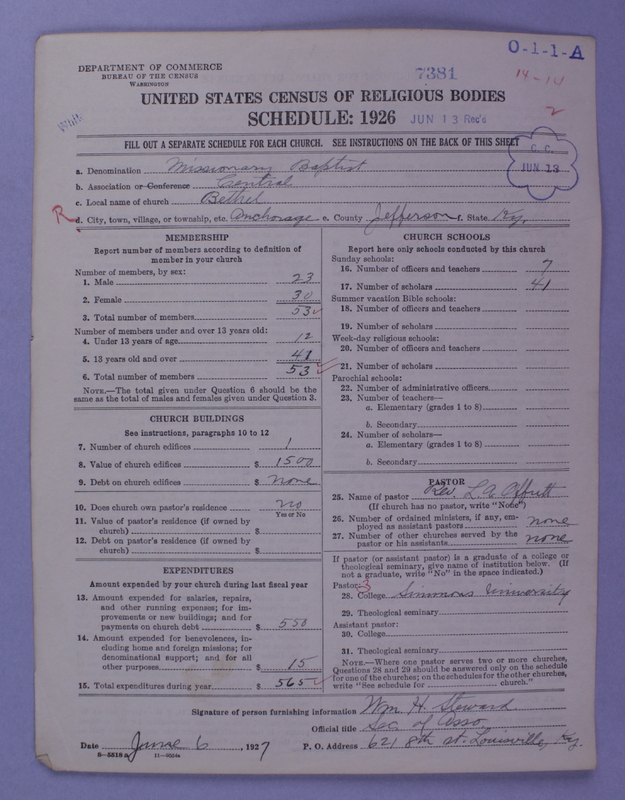 O-1-1-A
DEPARTMENT OF COMMERCE
BUREAU OF THE CENSUS
WASHINGTON
7381
14-10
2
White
UNITED STATES CENSUS OF RELIGIOUS BODIES
SCHEDULE: 1926 JUN 13 Rec'd
FILL OUT A SEPARATE SCHEDULE FOR EACH CHURCH. SEE INSTRUCTIONS ON THE BACK OF THIS SHEET
C. C.
JUN 13
a. Denomination Missionary Baptist
b. Association or Conference Central
c. Local name of church Bethel
R
d. City, town, village, or township, etc. Anchorage e. County Jefferson f. State Ky.
MEMBERSHIP
Report number of members according to definition of
member in your church
Number of members, by sex:
1. Male 23
2. Female 30
3. Total number of members 53
Number of members under and over 13 years old:
4. Under 13 years of age 12
5. 13 years old and over 41
6. Total number of members 53
NOTE.—The total given under Question 6 should be the
same as the total of males and females given under Question 3.
CHURCH BUILDINGS
See instructions, paragraphs 10 to 12
7. Number of church edifices 1
8. Value of church edifices $ 1500
9. Debt on church edifices $ none
10. Does church own pastor's residence? no
Yes or No
11. Value of pastor's residence (if owned by
church) $
12. Debt on pastor's residence (if owned by
church) $
EXPENDITURES
Amount expended by your church during last fiscal year
13. Amount expended for salaries, repairs,
and other running expenses; for im-
provements or new buildings; and for
payments on church debt $ 550
14. Amount expended for benevolences, in-
cluding home and foreign missions; for
denominational support; and for all
other purposes $ 15
15. Total expenditures during year $ 565
CHURCH SCHOOLS
Report here only schools conducted by this church
Sunday schools:
16. Number of officers and teachers 7
17. Number of scholars 41
Summer vacation Bible schools:
18. Number of officers and teachers
19. Number of scholars
Week-day religious schools:
20. Number of officers and teachers
21. Number of scholars
Parochial schools:
22. Number of administrative officers
23. Number of teachers—
a. Elementary (grades 1 to 8)
b. Secondary
24. Number of scholars—
a. Elementary (grades 1 to 8)
b. Secondary
PASTOR
25. Name of pastor Rev. L. A. Offutt
(If church has no pastor, write "None")
26. Number of ordained ministers, if any, em-
ployed as assistant pastors none
27. Number of other churches served by the
pastor or his assistants none
If pastor (or assistant pastor) is a graduate of a college or
theological seminary, give name of institution below. (If
not a graduate, write "No" in the space indicated.)
Pastor:
28. College Simmons University
29. Theological seminary
Assistant pastor:
30. College
31. Theological seminary
NOTE.—Where one pastor serves two or more churches,
Questions 28 and 29 should be answered only on the schedule
for one of the churches; on the schedules for the other churches,
write "See schedule for church."
Signature of person furnishing information Wm H. Steward
Official title Sec. of Asso.
Date June 6, 1927 P. O. Address 621 8th St. Louisville, Ky.
8-5518a 11-9524a